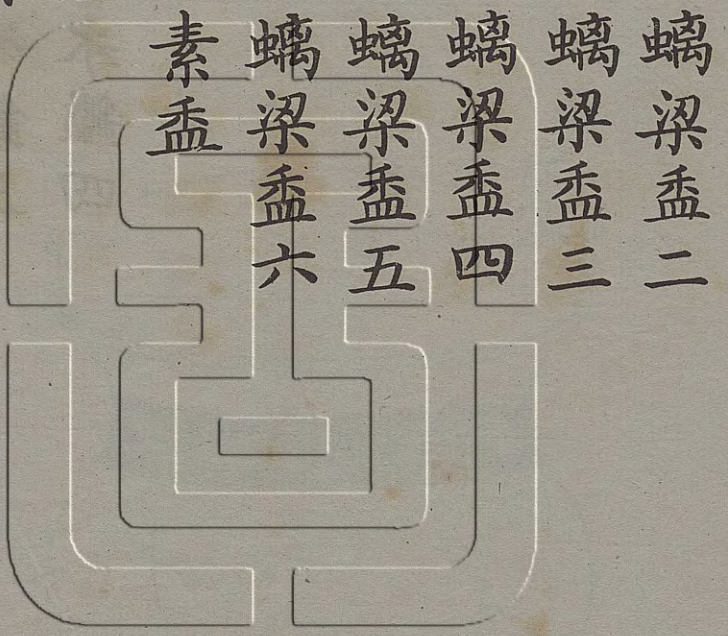 螭梁盉二
螭梁盉三
螭梁盉四
螭梁盉五
螭梁盉六
素盉